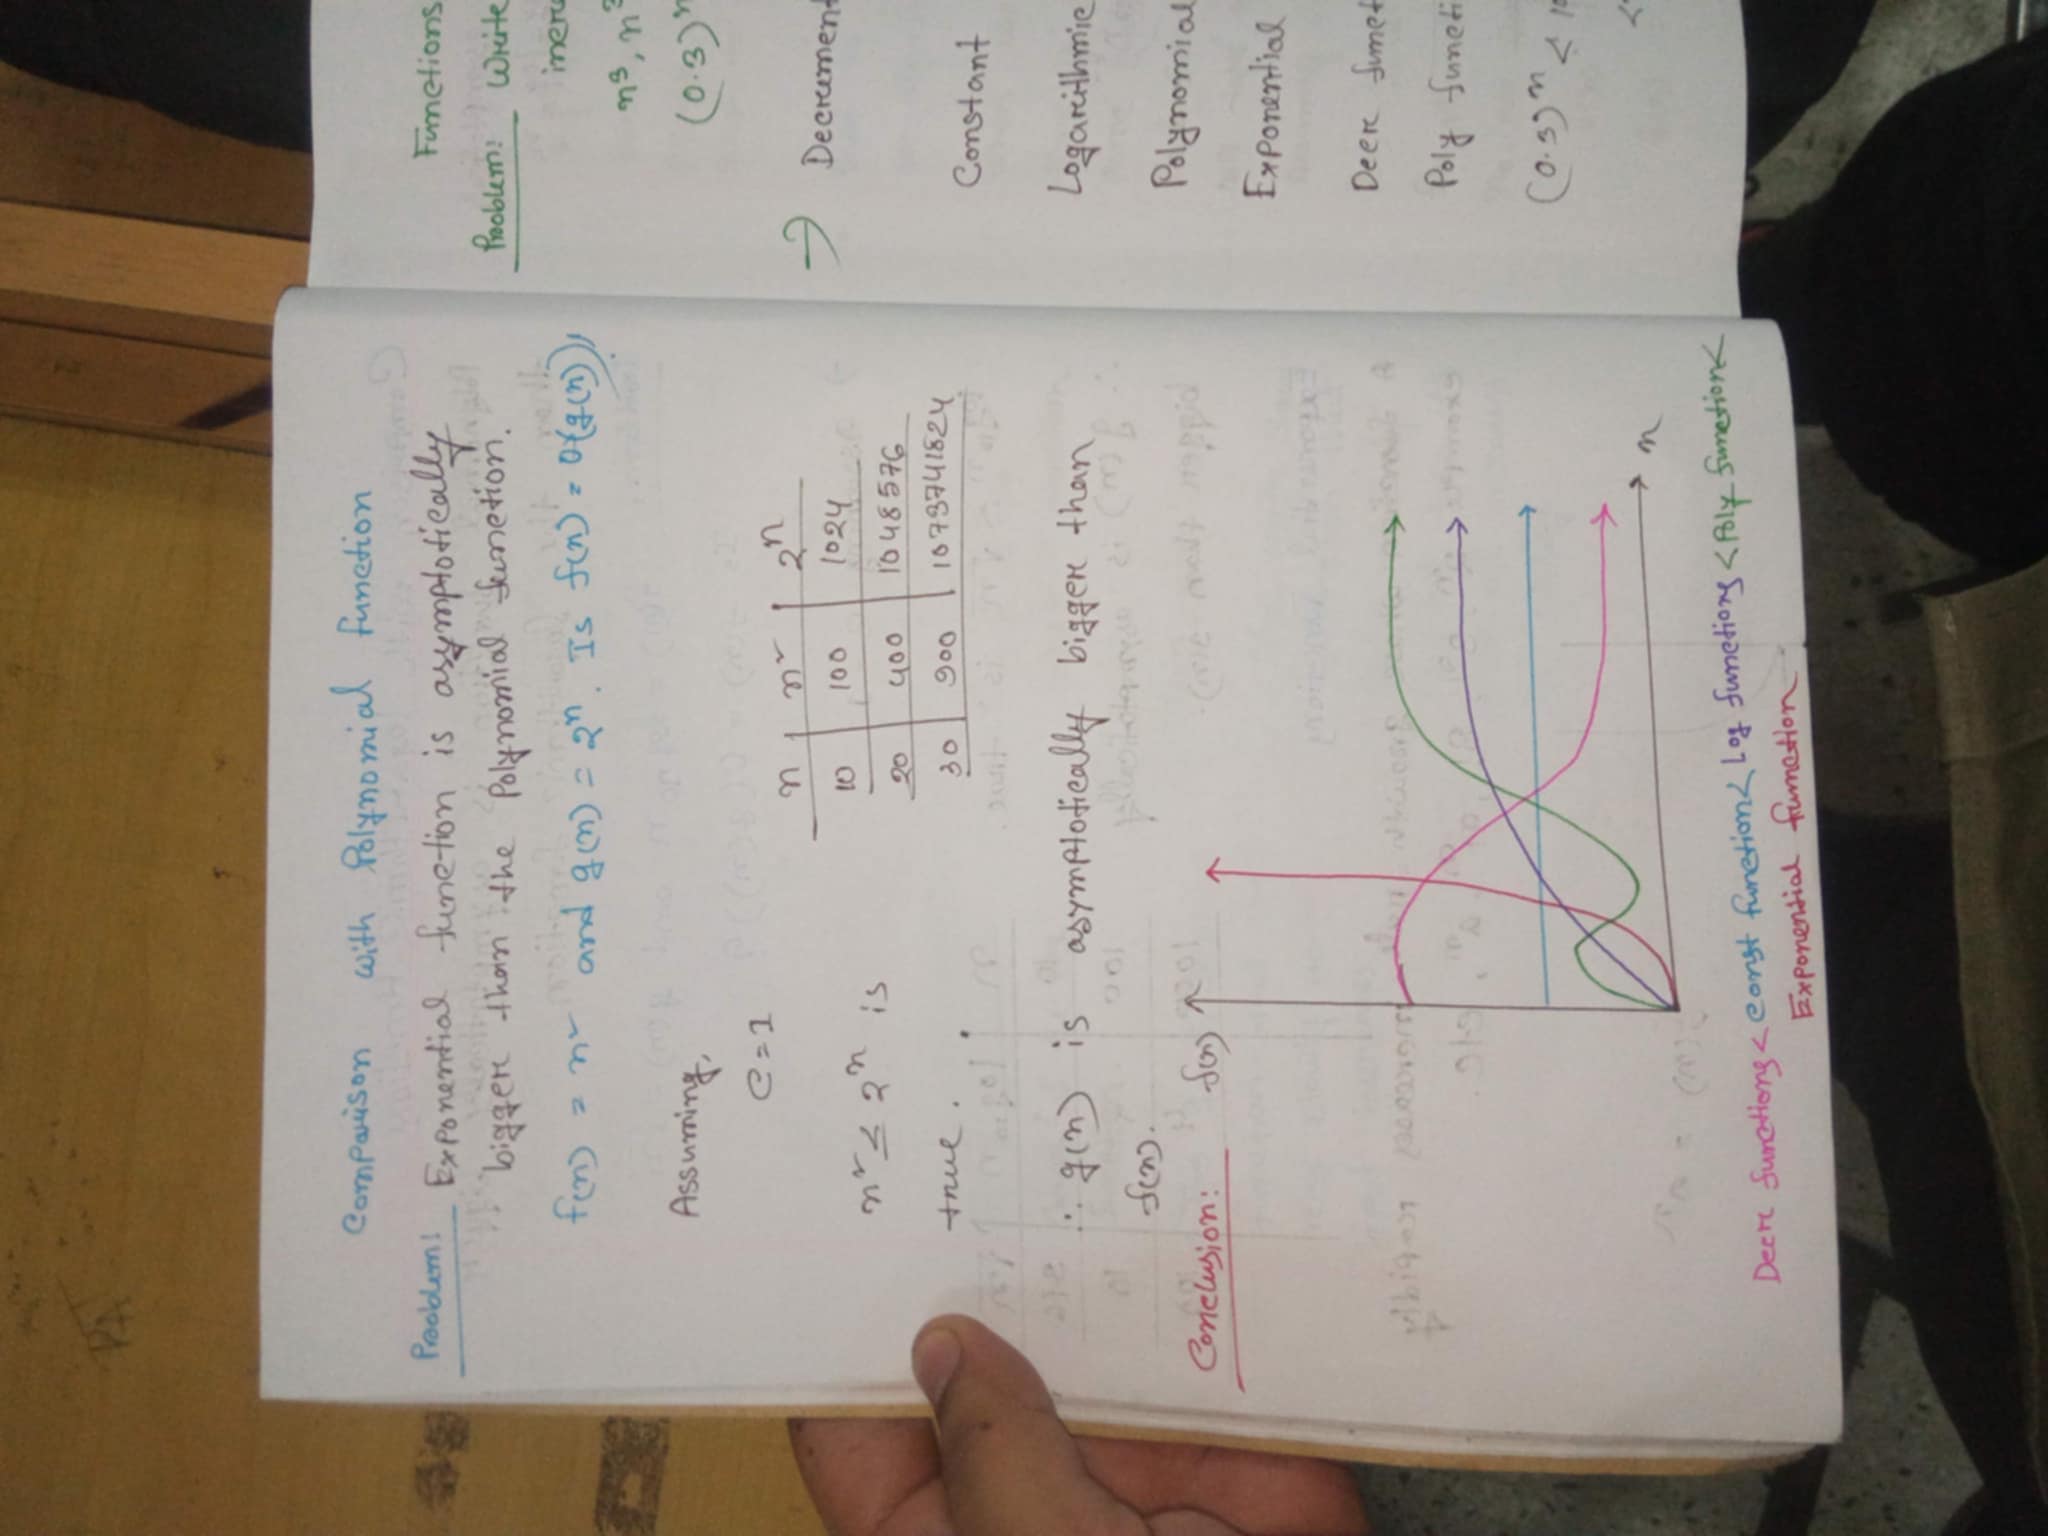 Comparison with Polynomial function
Problem: Exponential function is asymptotically
bigger than the Polynomial function.
f(n) = n² and g(n) = 2ⁿ. Is f(n) = O(g(n))
Assuming,
C=1
n² ≤ 2ⁿ is
true.
n n² 2ⁿ
10 100 1024
20 400 1048576
30 900 1073741824
∴ g(n) is asymptotically bigger than
f(n).
Conclusion:
f(n)
n
Decr functions < const function < Log functions < Poly function <
Exponential function
Functions
Problem: Write
n³, n
(0.3)ⁿ
→ Decrement
Constant
Logarithmic
Polynomial
Exponential
Decr funct
Poly functi
(0.3)ⁿ <
<